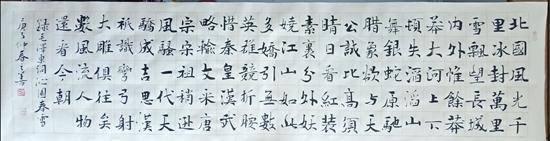 北國風光千
里冰封萬里
雪飄望長城
內外惟餘莽
莽大河上下
頓失滔滔山
舞銀蛇原馳
臘象欲與天
公試比高須
晴日看紅裝
素裹分外妖
嬈江山如此
多嬌引無數
英雄競折腰
惜秦皇漢武
略輸文采唐
宗宋祖稍遜
風騷一代天
驕成吉思汗
祇識彎弓射
大雕俱往矣
數風流人物
還看今朝
錄毛澤東詞沁園春雪
仲春